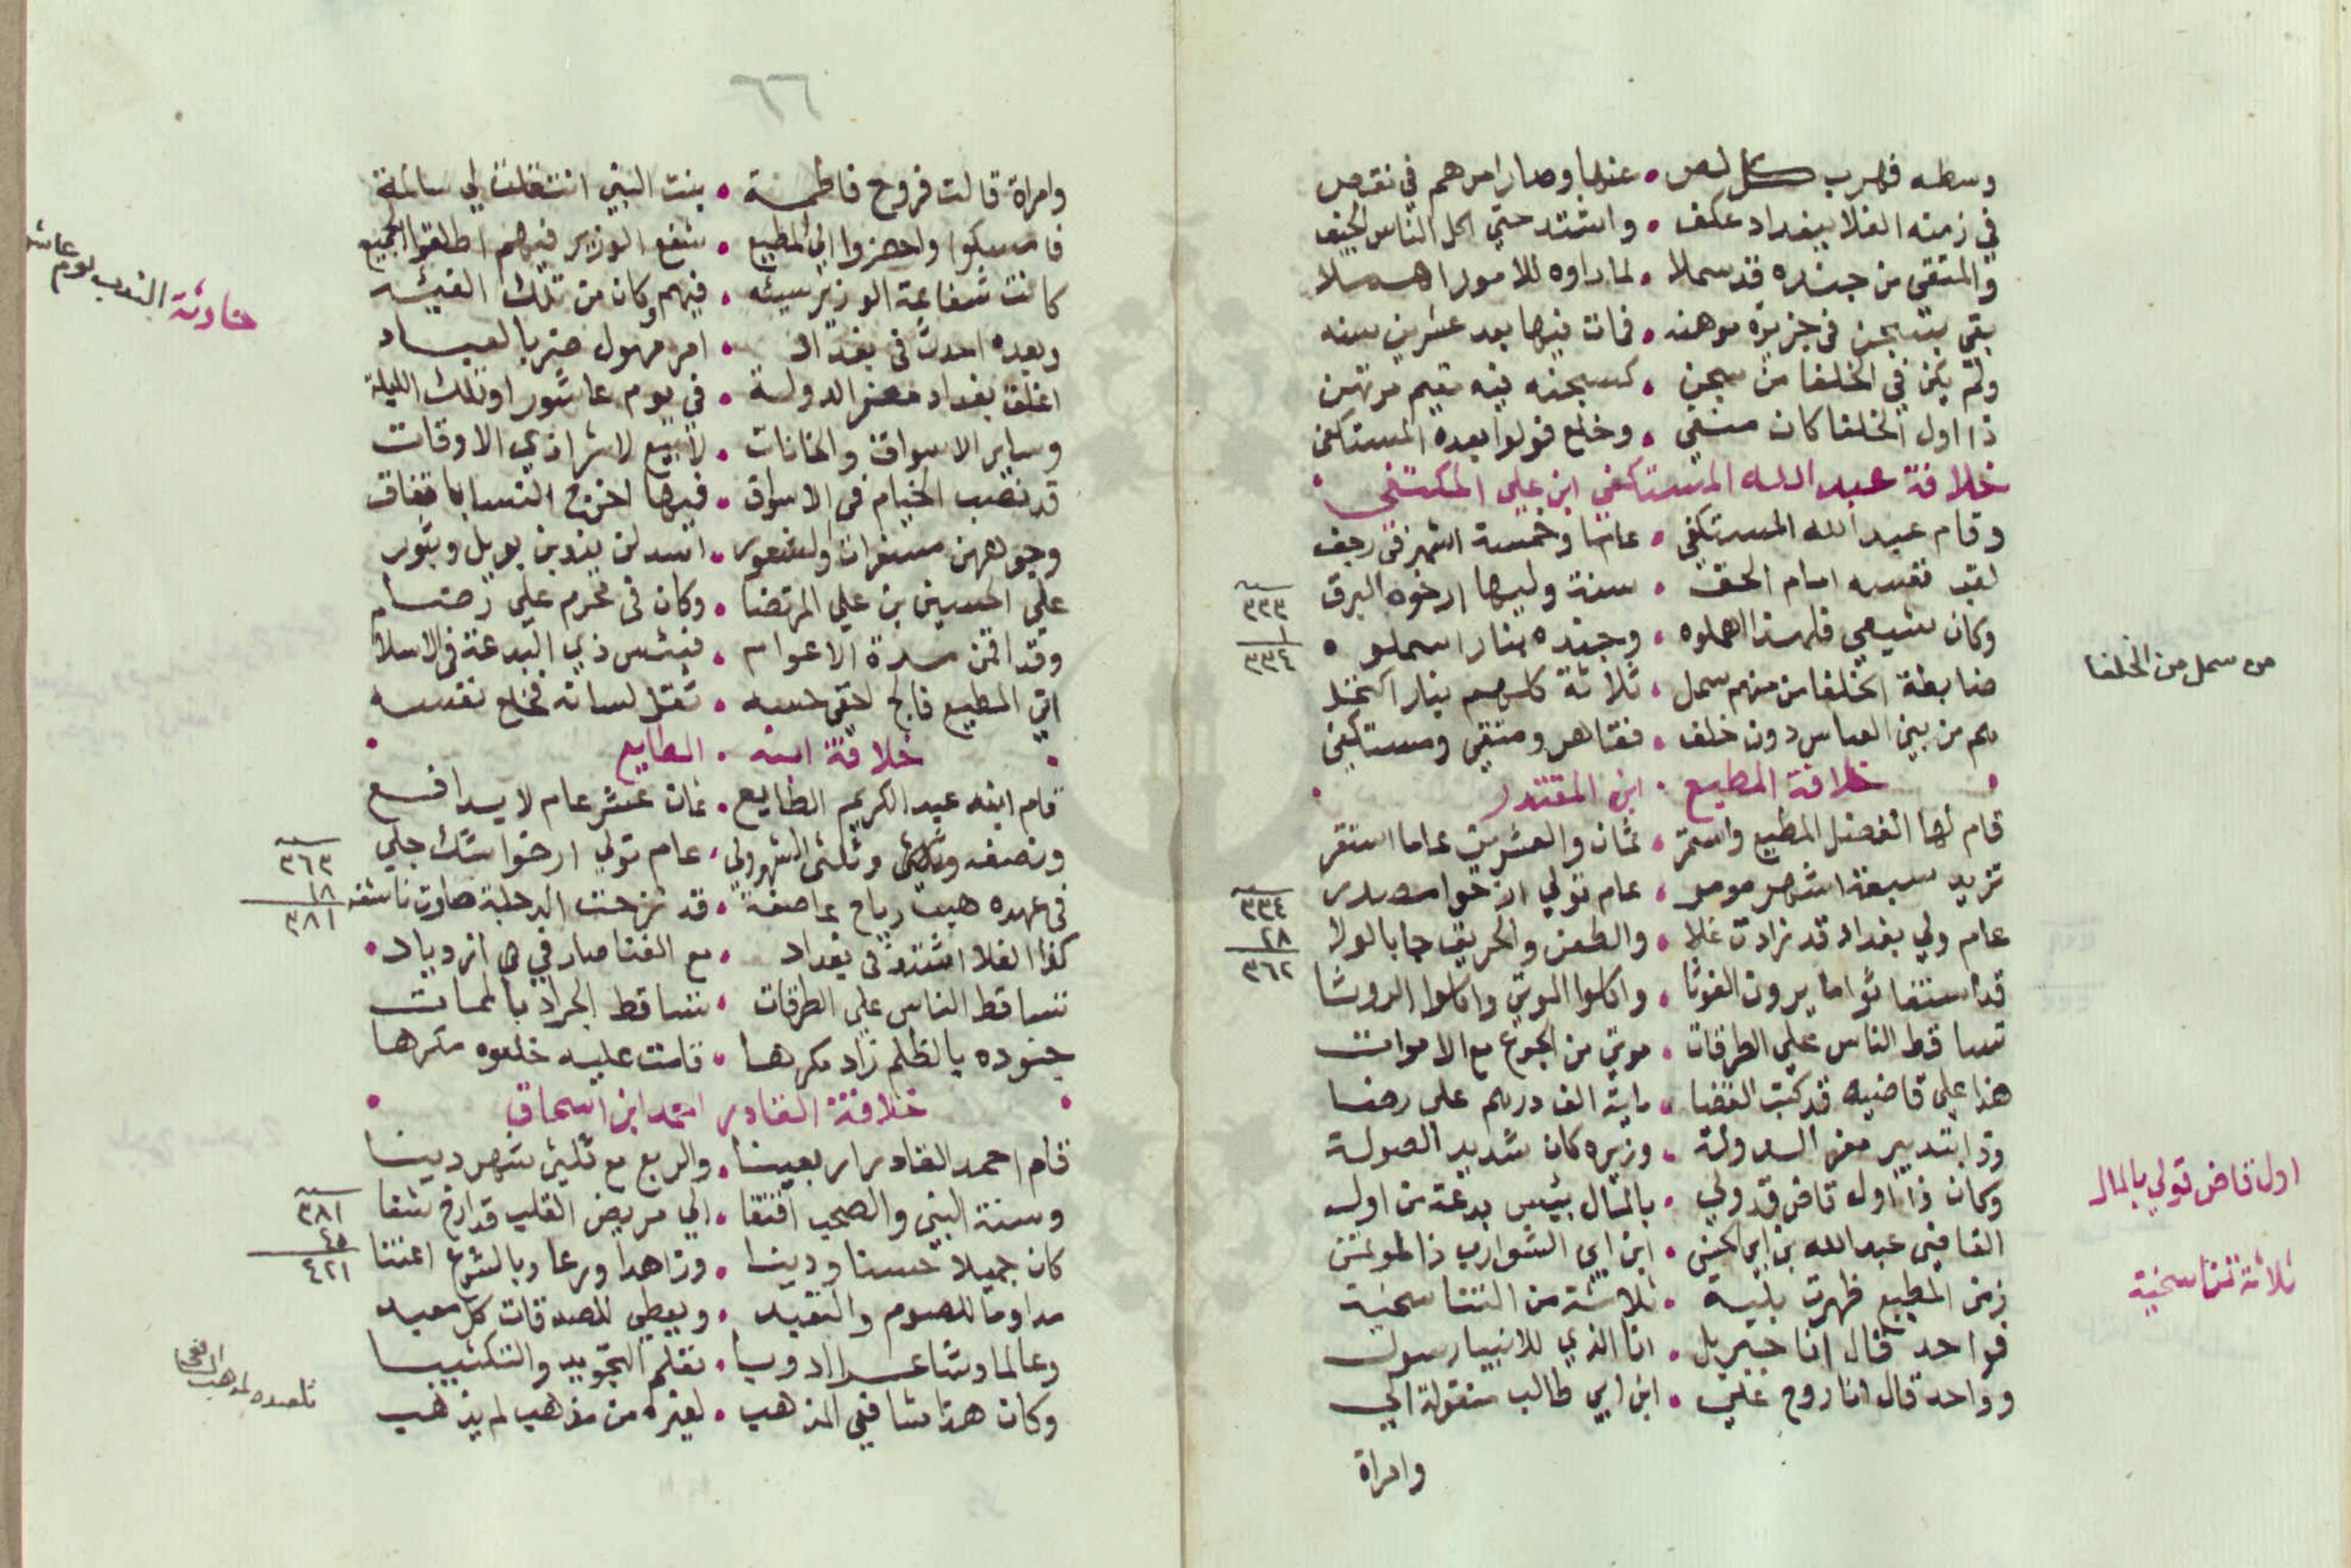 وسطه فهرب كل لص • عنها وصار امرهم في نقص
في زمنه الغلا ببغداد عكف • واشتد حتي اكل الناس الجيف
والمتقي من جنده قد سملا • لما راوه للامور اهملا
بقي بسجن في جزيرة موهنه • فمات فيها بعد عشرين سنه
ولم يكن في الخلفا من سجن • كسجنه فيه مقيم مرتهن
ذا اول الخلفا كان منفي • وخلع فولوا بعده المستكفي
خلافة عبد الله المستكفي ابن علي المكتفي
وقام عبد الله المستكفي • عاما وخمسة اشهر في رجف
لقب نفسه امام الحق • سنة وليها ارخوه البرق
٣٣٣
١
٣٣٤
وكان شيعي فلهذا اهملوه • وجنده بنار اسملوه
من سمل من الخلفا
ضابطة الخلفا من منهم سمل • ثلاثة كلهم بنار اكتحل
هم من بني العباس دون خلف • فقاهر ومتقي ومستكفي
خلافة المطيع • ابن المقتدر
قام لها الفضل المطيع واستمر • ثمان والعشرين عاما استقر
تزيد سبعة اشهر • عام تولي ارخوا
٣٣٤
٢٨
٣٦٢
عام ولي بغداد قد زادت غلا • والطعن والحريق جا بالولا
قد استغاثوا ما يرون الغوثا • واكلوا الموتي واكلوا الروثا
تساقط الناس علي الطرقات • موتي من الجوع مع الاموات
هذا علي قاضيه قد كتب القضا • ماية الف درهم علي رضا
وذا بتدبير معز الدولة • وزيره كان شديد الصولة
وكان ذا اول قاض قد ولي • بالمال بئس بدعة من اول
اول قاض تولي بالمال
القاضي عبد الله بن ابي الحسن • ابن ابي الشوارب ذا
ثلاثة تناسخية
زمن المطيع ظهرت بلية • ثلاثة من التناسخية
فواحد قال انا جبريل • انا الذي للانبيا رسول
وواحد قال انا روح علي • ابن ابي طالب منقولة الي
وامراة
٦٦
وامراة قالت فروح فاطمة • بنت النبي انتقلت لي سالمة
فامسكوا واحضروا الي المطيع • شفع الوزير فيهم اطلقوا الجميع
كانت شفاعة الوزير سيئه • فيهم وكان من تلك الفئه
حادثة الندب يوم عاشو
وبعده احدث في بغداد • امر مهول ضر بالعباد
اغلق بغداد معز الدولة • في يوم عاشورا وتلك الليلة
وساير الاسواق والخانات • لا بيع لا شرا ذي الاوقات
قد نصب الخيام في الاسواق • فيها اخرج النسا باتفاق
وجوههن مسفرات والشعور • اسدلن يندبن بويل وثبور
علي الحسين بن علي المرتضا • وكان في محرم علي رضا
وقد اقمن مدة الاعوام • فبئس ذي البدعة في الاسلام
اتي المطيع فالج لحق حسه • ثقل لسانه فخلع نفسه
خلافة ابنه • الطايع
قام ابنه عبد الكريم الطايع • ثمان عشر عام لا يدافع
ونصفه وثلثي الشهر ولي • عام تولي ارخوا شك جلي
٣٦٣
١٨
٣٨١
في عهده هبت رياح عاصفة • قد نزحت الدجلة صارت ناشفه
كذا الغلا اشتد في بغداد • مع الفنا صار في ازدياد •
تساقط الناس علي الطرقات • تساقط الجراد بالممات
جنوده بالظلم زاد مكرها • قامت عليه خلعوه مكرها
خلافة القادر احمد ابن اسحاق
قام احمد القادر اربعينا • والربع مع ثلثي شهر دينا
وسنة النبي والصحب اقتفا • الي مريض القلب قد ارخ شفا
٣٨١
٤٠
٤٢١
كان جميلا حسنا ودينا • وزاهدا ورعا وبالشرع اعتنا
مداوما للصوم والتعبد • ويعطي للصدقات كل معبد
وعالما وشاعرا اديبا • تعلم التجويد والتكتيبا
وكان هذا شافعي المذهب • لغيره من مذهب لم يذهب